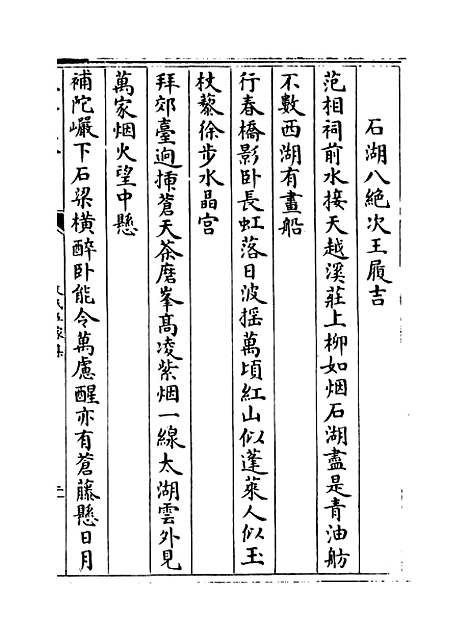 石湖八絶次王履吉
范相祠前水接天越溪莊上柳如烟石湖盡是青油舫
不數西湖有畫船
行春橋影卧長虹落日波摇萬頃紅山似蓬萊人似玉
杖藜徐步水晶宫
拜郊臺迥揷蒼天茶磨峯髙凌紫烟一線太湖雲外見
萬家烟火望中懸
補陀巖下石梁横醉卧能令萬慮醒亦有蒼藤懸日月
文氏五家集